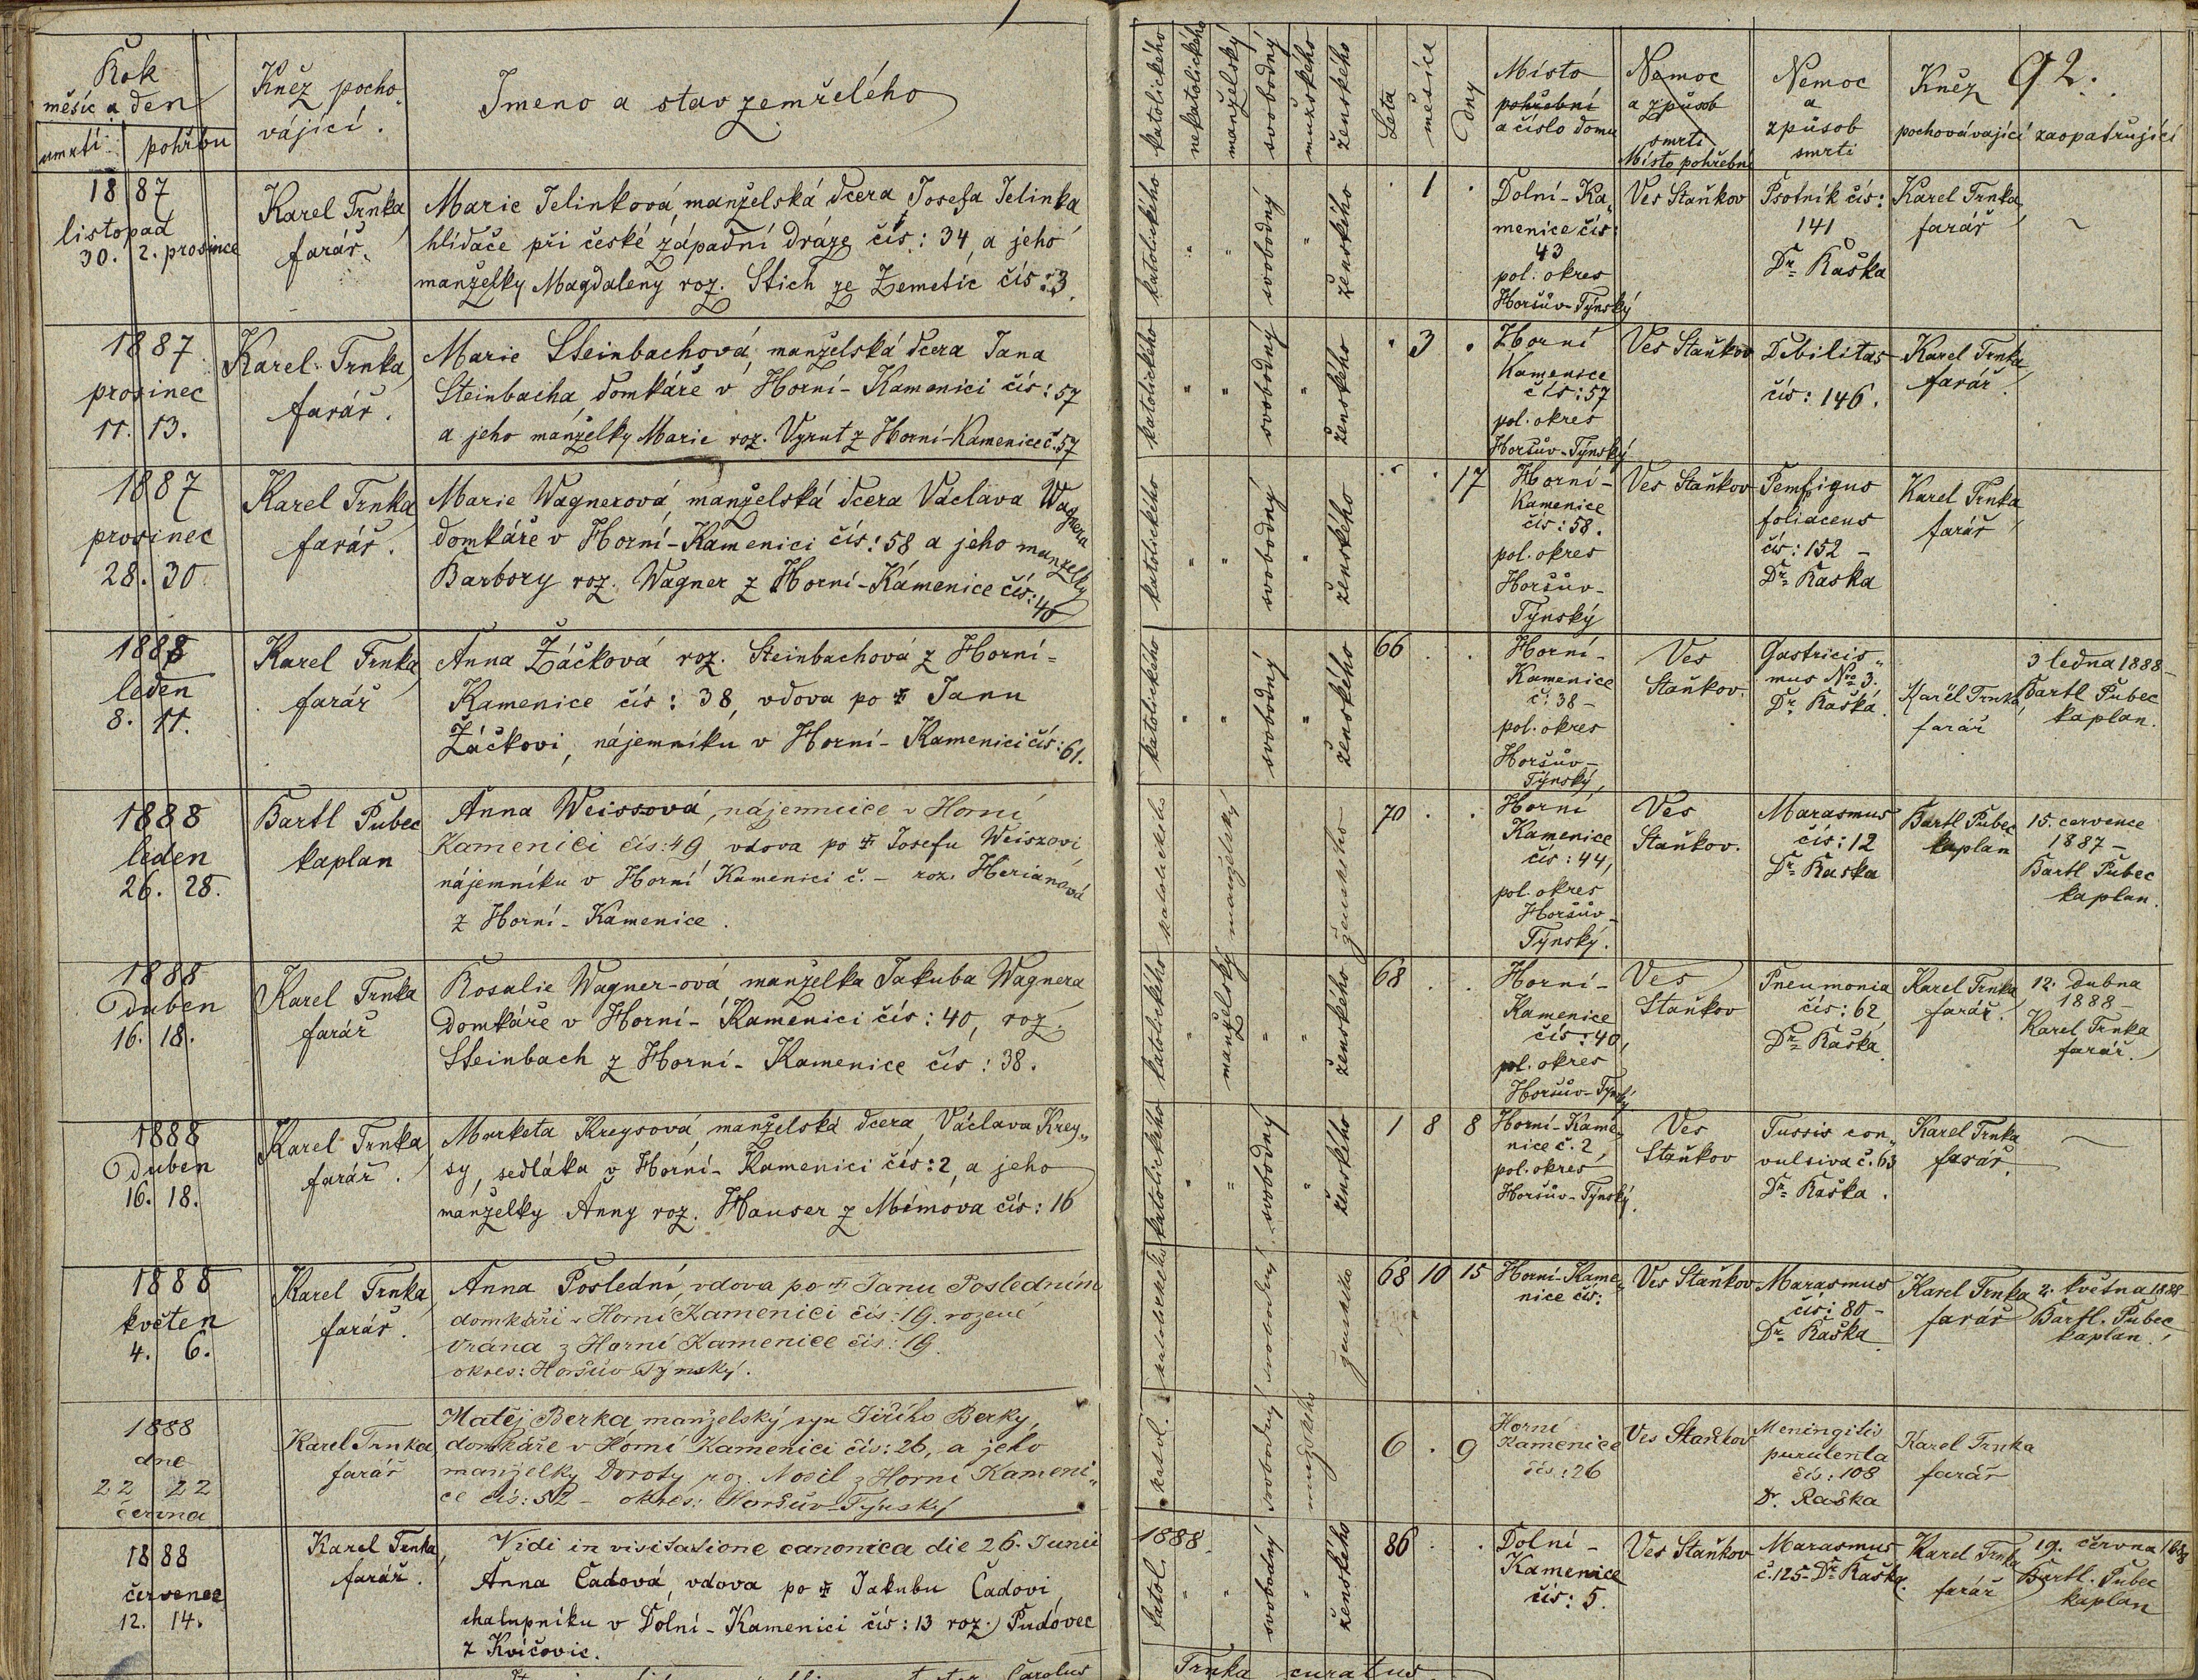 Rok
měsíc a den
umrtí pohřbu
Kněz pocho-
vájící.
Jmeno a stav zemřelého
katolického
nekatolického
manželský
svobodný
mužského
ženského
Léta
měsíce
dny
Místo
pohřební
a číslo domu
Nemoc
a způsob
smrti
Místo pohřební
Nemoc
a
způsob
smrti
Kněz 92.
pochovávající zaopatřující
1887
listopad
30. 2. prosince
Karel Trnka,
farář.
Marie Jelinková, manželská dcera Josefa Jelinka
hlídače při české západní dráze čís: 34, a jeho
manželky Magdaleny roz. Stich ze Zemetic čís: 3.
katolického " " svobodný " ženského
. 1 .
Dolní-Ka„
menice čís:
43
pol. okres
Horšův-Týnský
Ves Staňkov
Psotník čís:
141
Dr. Raška
Karel Trnka,
farář
~
1887
prosinec
11. 13.
Karel Trnka,
farář.
Marie Steinbachová, manželská dcera Jana
Steinbacha, domkáře v Horní-Kamenici čís: 57
a jeho manželky Marie roz. Vyrut z Horní-Kamenice č. 57
katolického " " svobodný " ženského
. 3 .
Horní
Kamenice
čís: 57
pol. okres
Horšův-Týnský
Ves Staňkov
Debilitas
čís: 146.
Karel Trnka,
farář
1887
prosinec
28. 30
Karel Trnka,
farář.
Marie Wagnerová, manželská dcera Václava Wagnera
domkáře v Horní-Kamenici čís: 58 a jeho manželky
Barbory roz. Wagner z Horní-Kamenice čís: 40
katolického " " svobodný " ženského
. . 17
Horní-
Kamenice
čís: 58.
pol. okres
Horšův-
Týnský
Ves Staňkov
Pemfigus
foliaceus
čís: 152 -
Dr. Raška
Karel Trnka,
farář
1888
leden
8. 11.
Karel Trnka,
farář
Anna Žáčková roz. Steinbachová z Horní-
Kamenice čís: 38, vdova po ✝ Janu
Žáčkovi, nájemníku v Horní-Kamenici čís: 61.
katolického " " svobodný " ženského
66 . .
Horní-
Kamenice
č: 38 -
pol. okres
Horšův-
Týnský,
Ves
Staňkov.
Gastricis„
mus No 3.
Dr. Raška.
Karel Trnka,
farář
3 ledna 1888-
Bartl Pubec
kaplan.
1888
leden
26. 28.
Bartl Pubec
kaplan
Anna Weissová, nájemnice v Horní
Kamenici čís: 49 vdova po ✝ Josefu Weiszovi,
nájemníku v Horní Kamenici č. - roz. Herianová
z Horní-Kamenice.
katolického manželský ženského
70 . .
Horní
Kamenice
čís: 44,
pol. okres
Horšův-
Týnský.
Ves
Staňkov.
Marasmus
čís: 12
Dr. Raska
Bartl Pubec
kaplan
15. července
1887 -
Bartl Pubec
kaplan.
1888
Duben
16. 18.
Karel Trnka
farář
Rosalie Wagner-ová manželka Jakuba Wagnera,
domkáře v Horní-Kamenici čís: 40, roz.
Steinbach z Horní-Kamenice čís: 38.
katolického " manželský " " ženského
68 . .
Horní-
Kamenice
čís: 40,
pol. okres
Horšův-Týnský
Ves
Staňkov
Pneumonia
čís: 62
Dr. Raška.
Karel Trnka,
farář.
12. dubna
1888 -
Karel Trnka
farář.
1888
Duben
16. 18.
Karel Trnka,
farář.
Marketa Kreysová, manželská dcera, Václava Krey„
sy, sedláka v Horní-Kamenici čís: 2, a jeho
manželky Anny roz. Hauser z Mimova čís: 16
katolického " " svobodný " ženského
1 8 8
Horní-Kame„
nice č. 2,
pol. okres
Horšův-Týnský.
Ves
Staňkov
Tussis con„
vulsiva č. 63
Dr. Raška.
Karel Trnka
farář.
~
1888
květen
4. 6.
Karel Trnka,
farář.
Anna Poslední, vdova po ✝ Janu Posledním
domkáři v Horní Kamenici čís: 19. rozené
Vrána z Horní Kamenice čís: 19.
okres: Horšův Týnský.
katolického svobodný ženského
68 10 15
Horní-Kame„
nice čís:
Ves Staňkov
Marasmus
čís: 80 -
Dr. Raška.
Karel Trnka
farář
2. května 1888-
Bartl. Pubec
kaplan.
1888
dne
22 22
června
Karel Trnka,
farář
Matěj Berka, manželský syn Jiřího Berky,
domkáře v Horní Kamenici čís: 26, a jeho
manželky Doroty roz. Nosil z Horní Kameni„
ce čís: 52 - okres: Horšův-Týnský
katol. svobodný mužského
6 . 9
Horní
Kamenice
čís: 26
Ves Staňkov
Meningitis
purulenta
čís: 108
Dr. Raška
Karel Trnka
farář
1888
červenec
12. 14.
Karel Trnka,
farář.
Vidi in visitatione canonica die 26. Junii
1888.
Anna Čadová, vdova po ✝ Jakubu Čadovi
chalupníku v Dolní-Kamenici čís: 13 roz. Pudovec
z Kvíčovic.
katol. " " svobodný " ženského
86 . .
Dolní-
Kamenice
čís: 5.
Ves Staňkov
Marasmus
č. 125-Dr. Raška.
Karel Trnka
farář
19. června 1888
Bartl. Pubec
kaplan
Carolus
Trnka curatus